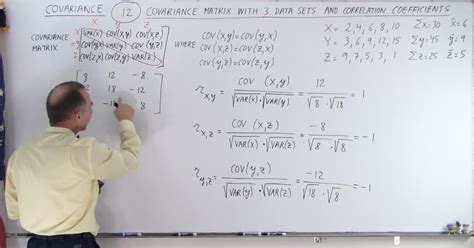 COVARIANCE 12 COVARIANCE MATRIX WITH 3 DATA SETS AND CORRELATION COEFFICIENTS
x y z
COVARIANCE MATRIX =
x VAR(X) COV(X,Y) COV(X,Z)
y COV(Y,X) VAR(Y) COV(Y,Z)
z COV(Z,X) COV(Z,Y) VAR(Z)
WHERE
COV(X,Y) = COV(Y,X)
COV(X,Z) = COV(Z,X)
COV(Y,Z) = COV(Z,Y)
X = 2, 4, 6, 8, 10 ΣX=30 x̄=6
Y = 3, 6, 9, 12, 15 Σy=45 ȳ=9
Z = 9, 7, 5, 3, 1 Σz=25 z̄=5
8 12 -8
18 -12
8
r x,y = COV (X,y) / √VAR(X) · √VAR(y) = 12 / √8 · √18 = 1
r x,z = COV (X,z) / √VAR(X) · √VAR(z) = -8 / √8 · √8 = -1
r y,z = COV(y,z) / √VAR(y) · √VAR(z) = -12 / √18 · √8 = -1